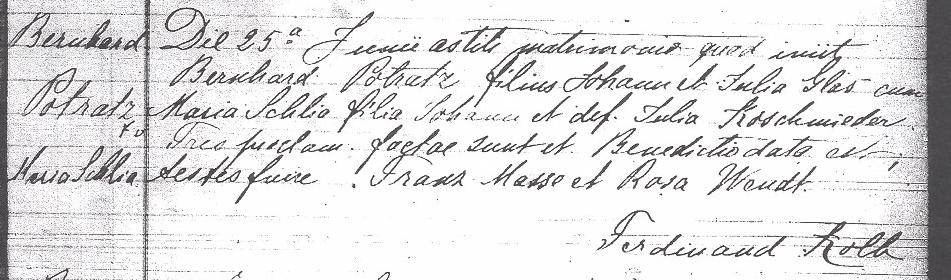 Bernhard Die 25ª Junii astiti matrimonio quod iniit
Bernhard Potratz filius Johann et Julia Glas cum
Potratz Maria Schlia filia Johann et def. Julia Koschmieder.
+ Tres proclam. factae sunt et Benedictio data est;
Maria Schlia testes fuire. Franz Masse et Rosa Wendt.
Ferdinand Kolb